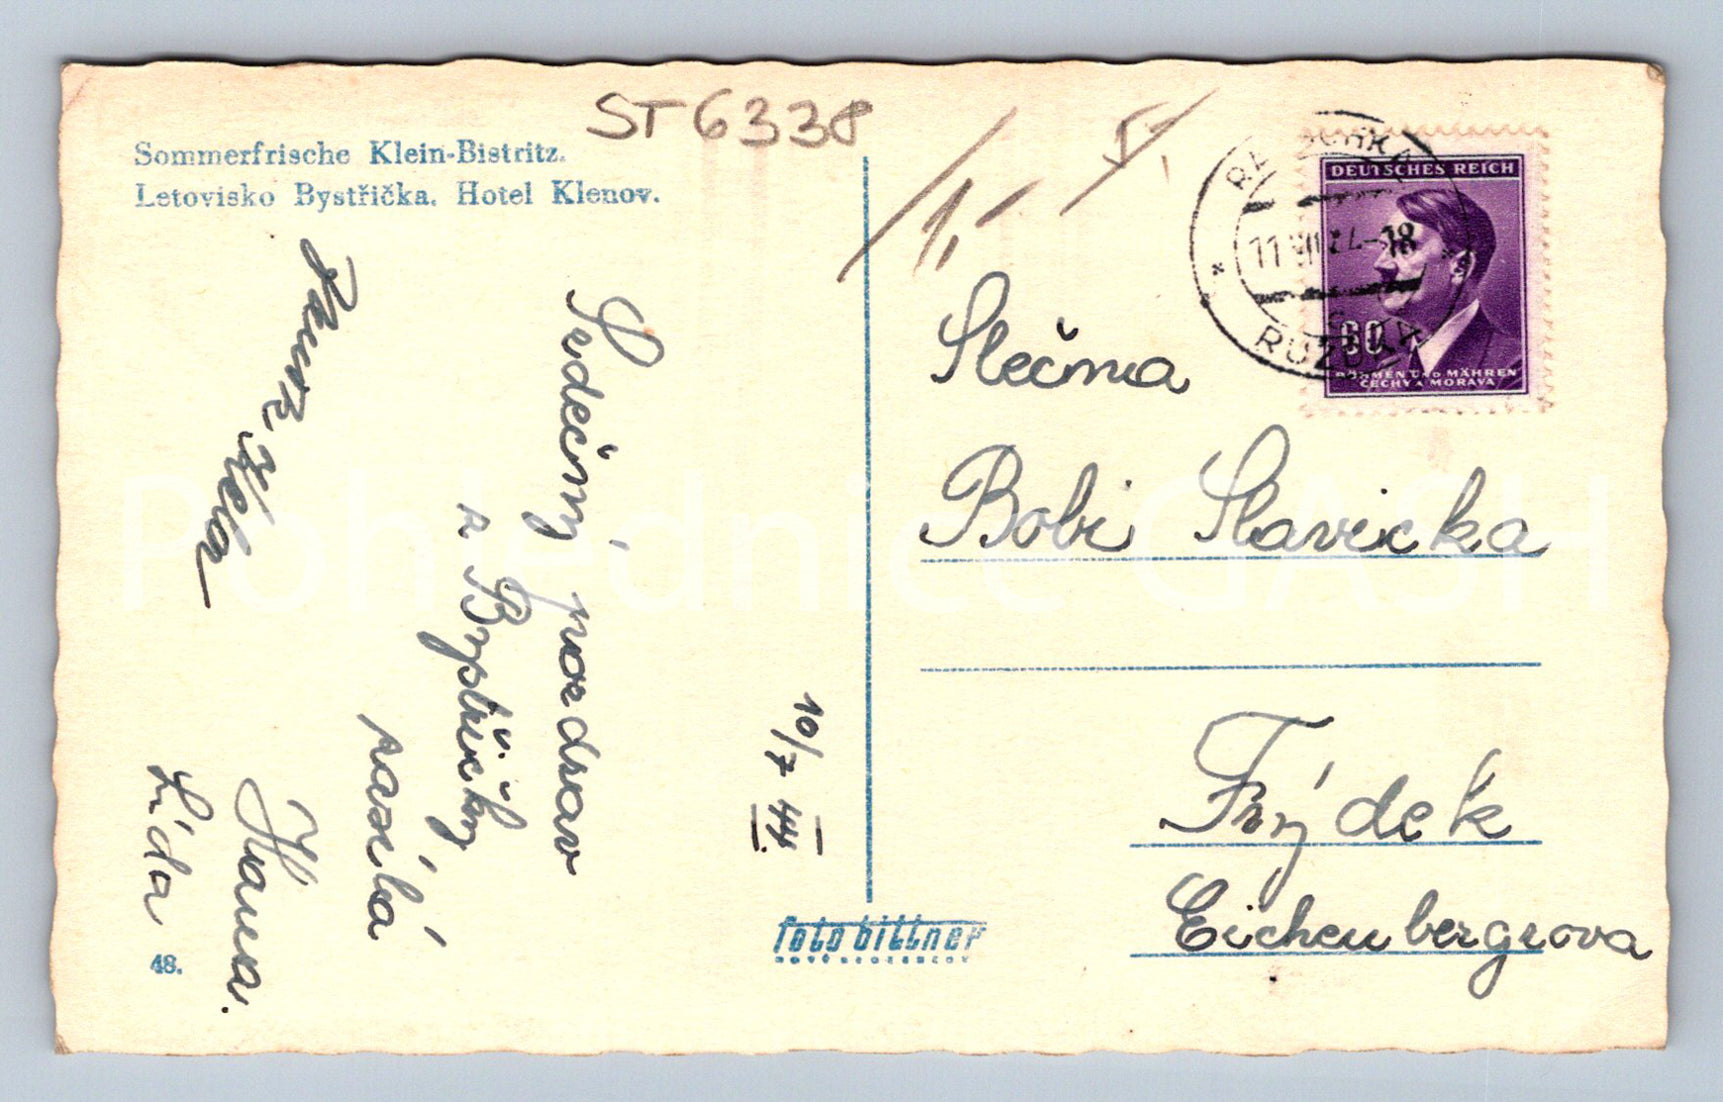 ST 6338
Sommerfrische Klein-Bistritz.
Letovisko Bystřička. Hotel Klenov.
1,-
Srdečný pozdrav
z Bystřičky
zasílá
Hana.
Lída
10/7 44.
48.
foto bittner
Slečna
Bobi Slavicka
Frýdek
Eichenbergrova
DEUTSCHES REICH
60
BÖHMEN UND MÄHREN
ČECHY A MORAVA
11 VII 44-18
RUŽĎKA
Pohlednice GASH